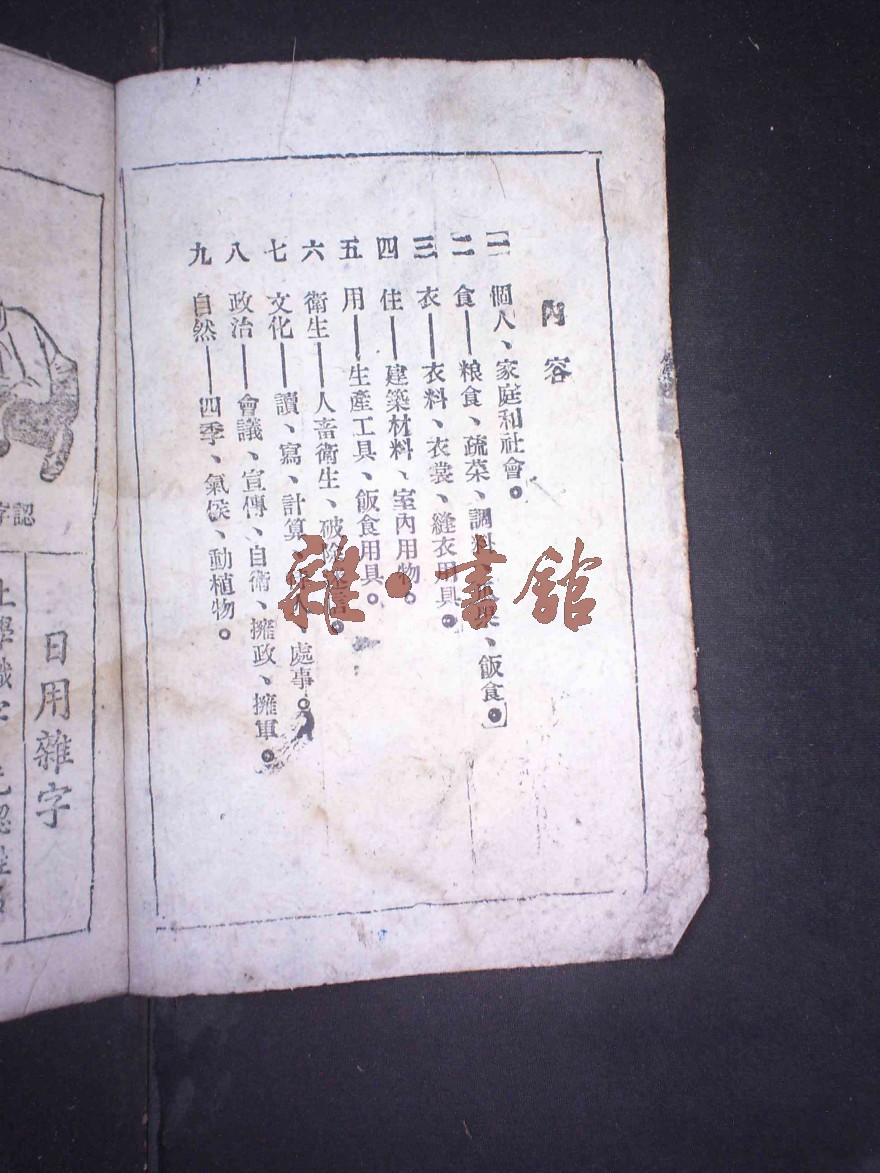 內容
一 個人、家庭和社會。
二 食——粮食、疏菜、調料、飯食。
三 衣——衣料、衣裳、縫衣用具。
四 住——建築材料、室內用物。
五 用——生產工具、飯食用具。
六 衛生——人畜衛生、破除迷信。
七 文化——讀、寫、計算、處事。
八 政治——會議、宣傳、自衛、擁政、擁軍。
九 自然——四季、氣候、動植物。
雜·書館
認字
日用雜字
上學識字